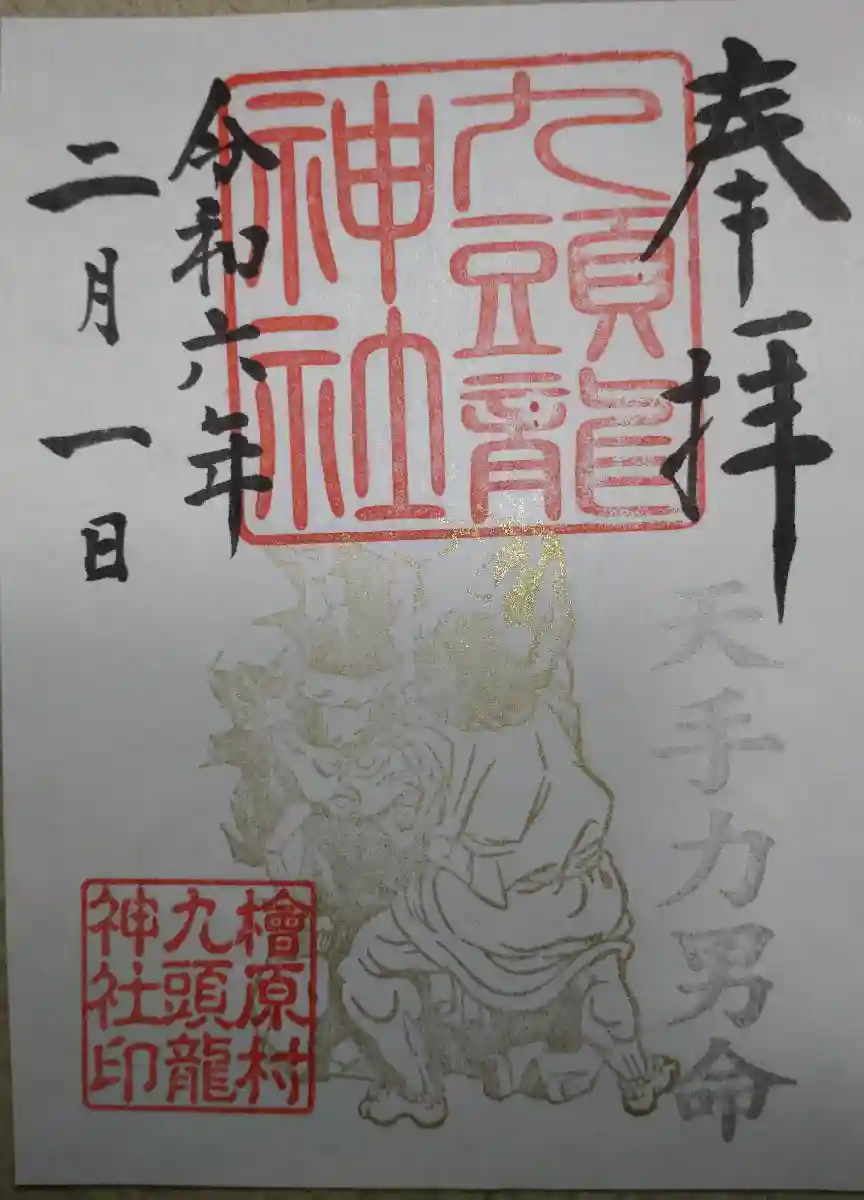 奉拝
天手力男命
九頭龍
神社
令和六年
二月一日
檜原村
九頭龍
神社印